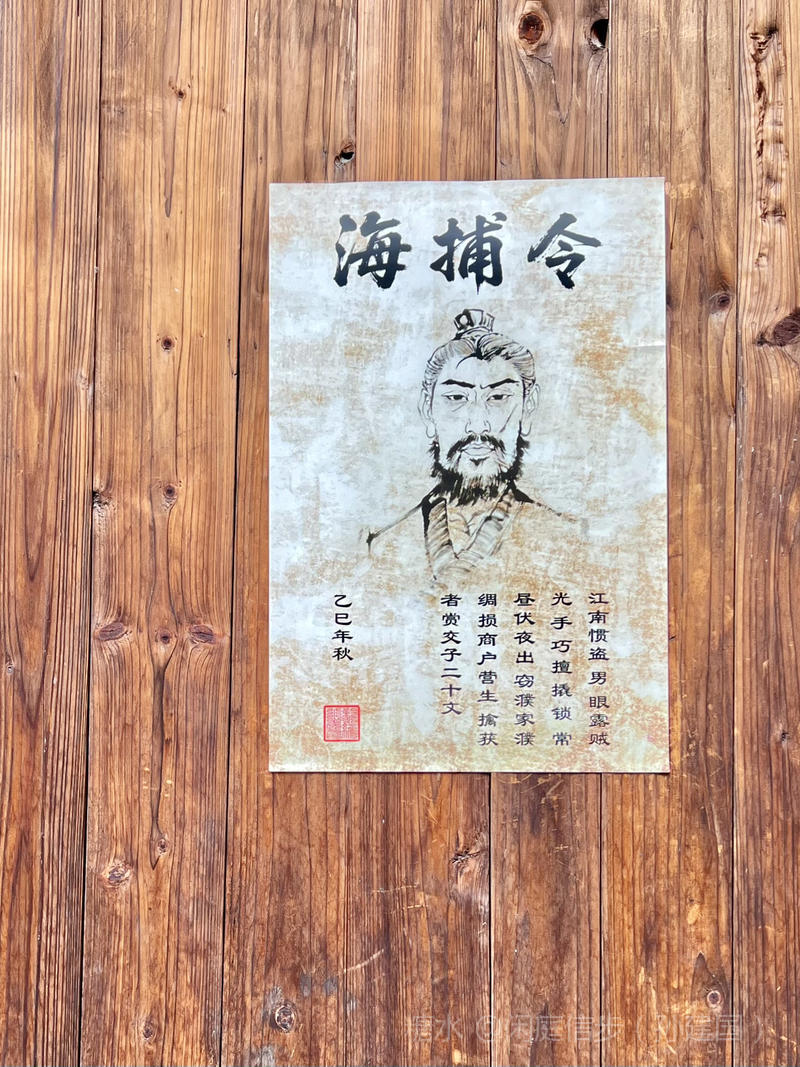 海捕令
江南惯盗 男 眼露贼
光 手巧擅撬锁 常
昼伏夜出 窃濮家濮
绸损商户营生 擒获
者赏交子二十文
乙巳年秋
@闲庭信步